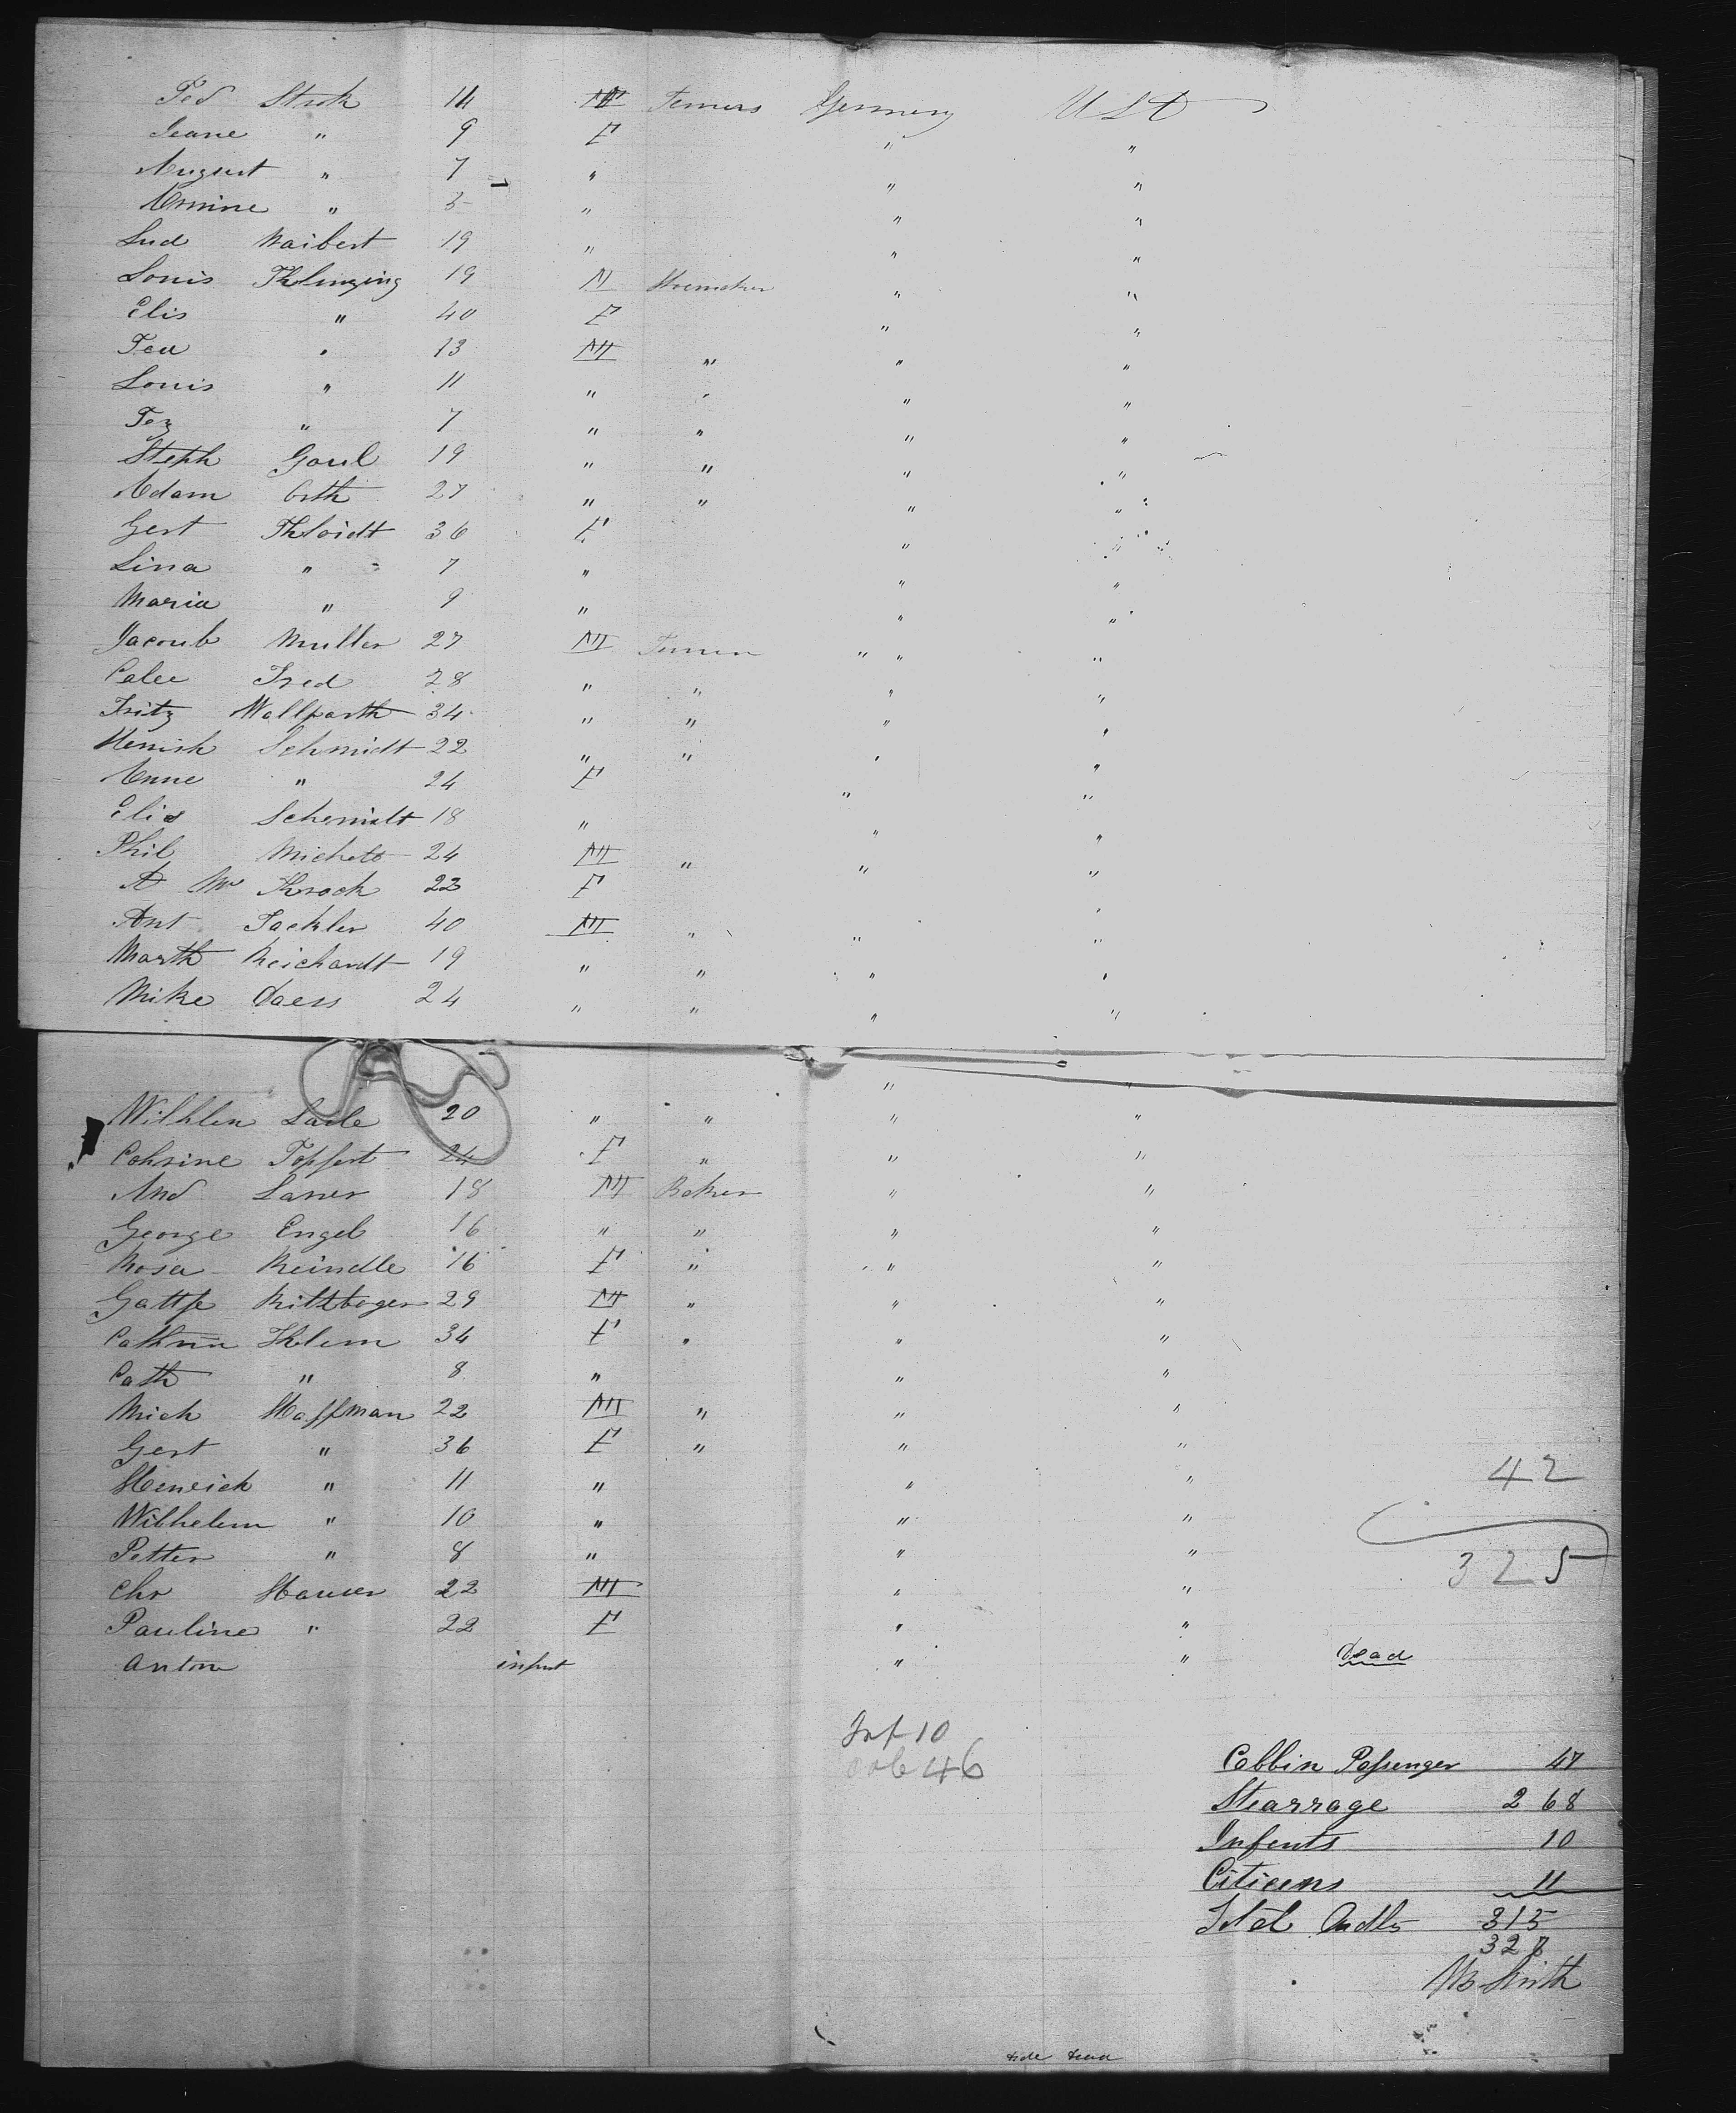 Ted Strok 14 M Fermers Germeny USA
Seane " 9 F " "
August " 7 " " "
Ermine " 3 " " "
Lud Maibert 19 " " "
Louis Klinging 19 M Shoemaker " "
Elis " 40 F " "
Fed " 13 M " " "
Louis " 11 " " " "
Fez " 7 " " " "
Steph Goul 19 " " " "
Adam Orth 27 " " " "
Gert Kloidt 36 F " "
Lina " 7 " " "
Maria " 9 " " "
Jacoub Muller 27 M Fermer " " "
Calec Fred 28 " " " "
Fritz Wollparth 34 " " " "
Henrish Schmidt 22 " " " "
Anne " 24 F " "
Elis Schemidt 18 " " "
Phil Michels 24 M " " "
A M Krock 22 F "
Ant Fackler 40 M " " "
Marth Reichardt 19 " " " "
Mike Daess 24 " " " "
" "
Wilhlem Laile 20 " " " "
Cohrine Topfert 24 F " " "
And Laner 18 M Baker " "
George Engel 16 " " " "
Rosa Reindle 16 F " " "
Gattfr Ritzboger 29 M " " "
Cathrin Khlem 34 F " " "
Cath " 8 " " "
Mich Hoffman 22 M " " "
Gert " 36 F " " "
Henrich " 11 " " " 42
Wilhelem " 10 " " "
Petter " 8 " " " 325
Chr Hauser 22 M " "
Pauline " 22 F " "
Anton infent " " dead
Inf 10
46
Cabbin Passenger 47
Stearrage 268
Infents 10
Citicens 11
Totel Andlts 315
328
Smith